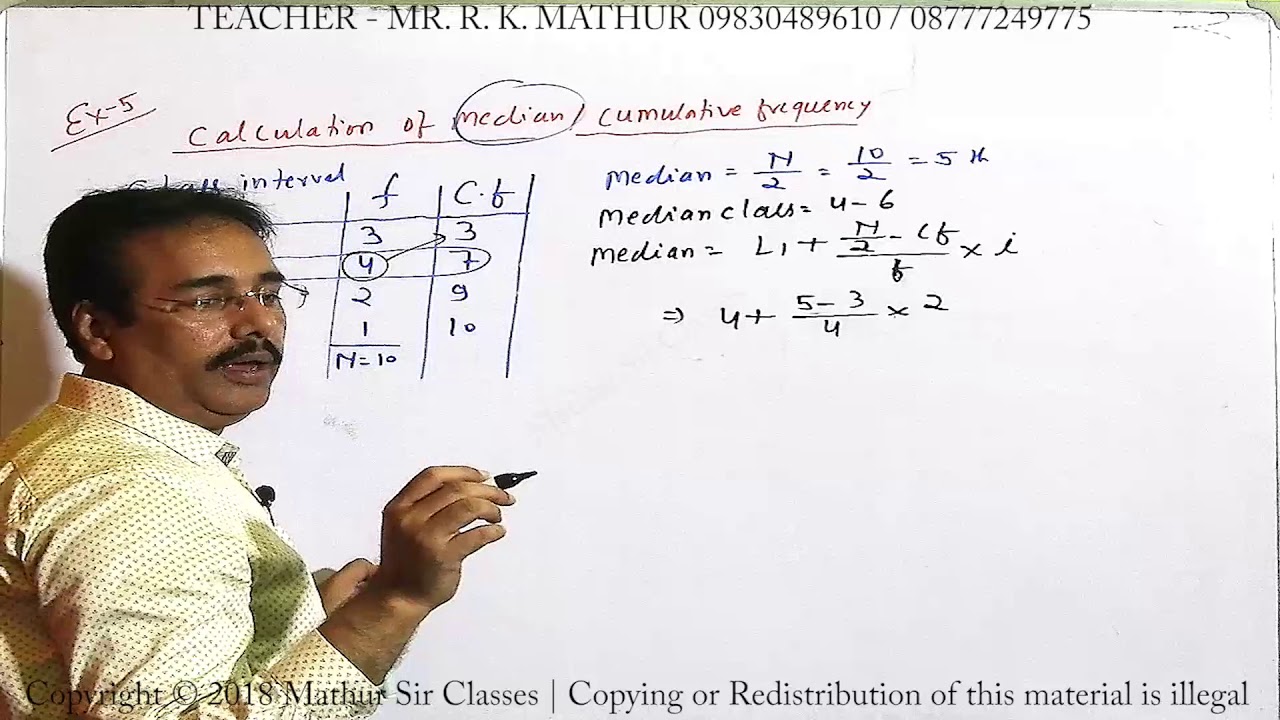 TEACHER - MR. R. K. MATHUR 09830489610 / 08777249775
Ex-5
Calculation of median / cumulative frequency
Class interval f C.f
3 3
4 7
2 9
1 10
N=10
median = N/2 = 10/2 = 5th
median class = 4-6
median = L1 + N/2 - Cf / f × i
⇒ 4 + 5-3 / 4 × 2
Copyright © 2018 Mathur Sir Classes | Copying or Redistribution of this material is illegal